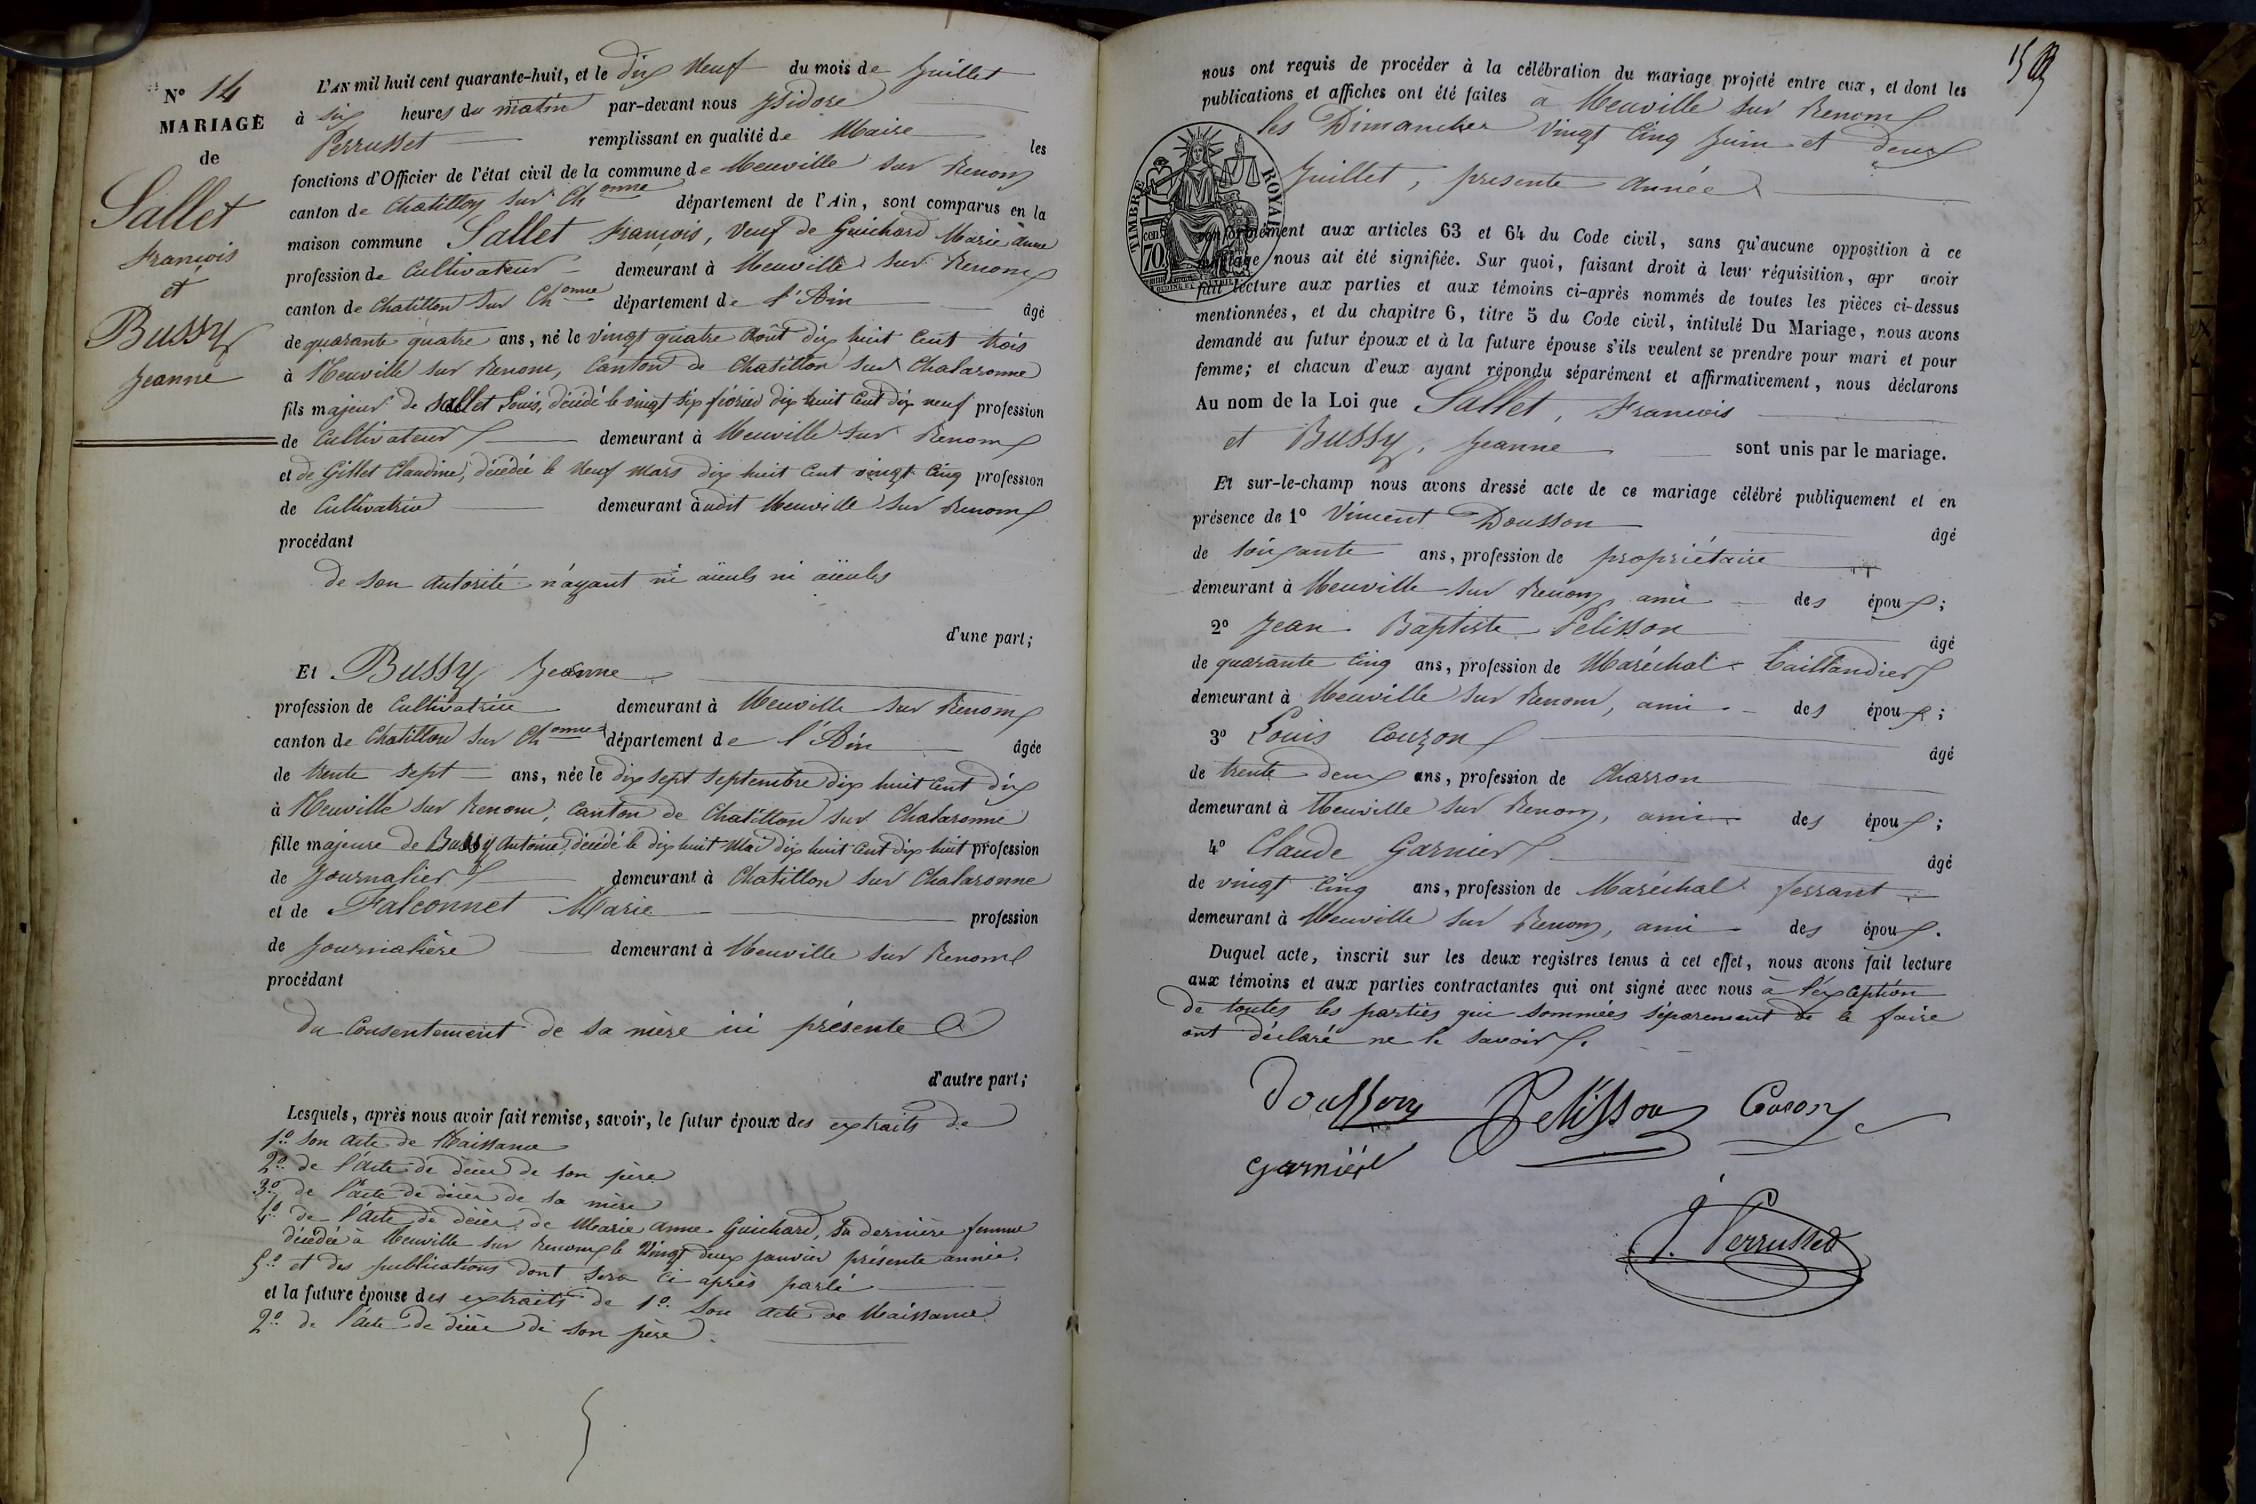 N° 14
MARIAGE
de
Sallet
François
et
Bussy
Jeanne
L'AN mil huit cent quarante-huit, et le dix Neuf du mois de Juillet
à six heures du matin par-devant nous Ysidore
Perrusset remplissant en qualité de Maire les
fonctions d'Officier de l'état civil de la commune de Neuville sur Renom
canton de Chatillon sur Chonne département de l'Ain, sont comparus en la
maison commune Sallet François, Veuf de Guichard Marie anne
profession de Cultivateur demeurant à Neuville sur Renom
canton de Chatillon sur Chonne département de l'Ain âgé
de quarante quatre ans, né le vingt quatre Août dix huit Cent trois
à Neuville sur Renom, Canton de Chatillon sur Chalaronne
fils majeur de Sallet Louis, décédé le vingt six février dix huit Cent dix neuf profession
de Cultivateur demeurant à Neuville sur Renom
et de Gillet Claudine, décédée le Neuf Mars dix huit Cent vingt Cinq profession
de Cultivatrice demeurant audit Neuville sur Renom
procédant
de son autorité n'ayant ni aïeuls ni aïeules
d'une part;
Et Bussy Jeanne
profession de Cultivatrice demeurant à Neuville sur Renom
canton de Chatillon sur Chonne département de l'Ain âgée
de trente sept ans, née le dix sept Septembre dix huit Cent dix
à Neuville sur Renom, Canton de Chatillon sur Chalaronne
fille majeure de Bussy Antoine, décédé le dix huit Mai dix huit Cent dix huit profession
de Journalier demeurant à Chatillon sur Chalaronne
et de Falconnet Marie profession
de Journalière demeurant à Neuville sur Renom
procédant
du Consentement de sa mère ici présente
d'autre part;
Lesquels, après nous avoir fait remise, savoir, le futur époux des extraits de
1° son acte de Naissance
2° de l'acte de décès de son père
3° de l'acte de décès de sa mère
4° de l'Acte de décès de Marie anne Guichard, sa dernière femme
décédée à Neuville sur Renom le Vingt deux janvier présente année.
5° et des publications dont sera ci après parlé
et la future épouse des extraits de 1° Son acte de Naissance
2° de l'acte de décès de son père
159
nous ont requis de procéder à la célébration du mariage projeté entre eux, et dont les
publications et affiches ont été faites à Neuville sur Renom
les Dimanches Vingt Cinq Juin et deux
Juillet, présente année
TIMBRE ROYAL
cen 70
conformément aux articles 63 et 64 du Code civil, sans qu'aucune opposition à ce
mariage nous ait été signifiée. Sur quoi, faisant droit à leur réquisition, apr avoir
fait lecture aux parties et aux témoins ci-après nommés de toutes les pièces ci-dessus
mentionnées, et du chapitre 6, titre 5 du Code civil, intitulé Du Mariage, nous avons
demandé au futur époux et à la future épouse s'ils veulent se prendre pour mari et pour
femme; et chacun d'eux ayant répondu séparément et affirmativement, nous déclarons
Au nom de la Loi que Sallet, François
et Bussy, Jeanne sont unis par le mariage.
Et sur-le-champ nous avons dressé acte de ce mariage célébré publiquement et en
présence de 1° Vincent Dousson âgé
de soixante ans, profession de propriétaire
demeurant à Neuville sur Renom, ami des époux;
2° Jean Baptiste Pelisson âgé
de quarante Cinq ans, profession de Maréchal Taillandier
demeurant à Neuville sur Renom, ami des époux;
3° Louis Couzon âgé
de trente deux ans, profession de Charron
demeurant à Neuville sur Renom, ami des époux;
4° Claude Garnier âgé
de vingt Cinq ans, profession de Maréchal ferrant
demeurant à Neuville sur Renom, ami des époux.
Duquel acte, inscrit sur les deux registres tenus à cet effet, nous avons fait lecture
aux témoins et aux parties contractantes qui ont signé avec nous à l'exception
de toutes les parties qui sommées séparement de le faire
ont déclaré ne le savoir.
Dousson Pelisson Couson
garnier
J. Perrusset